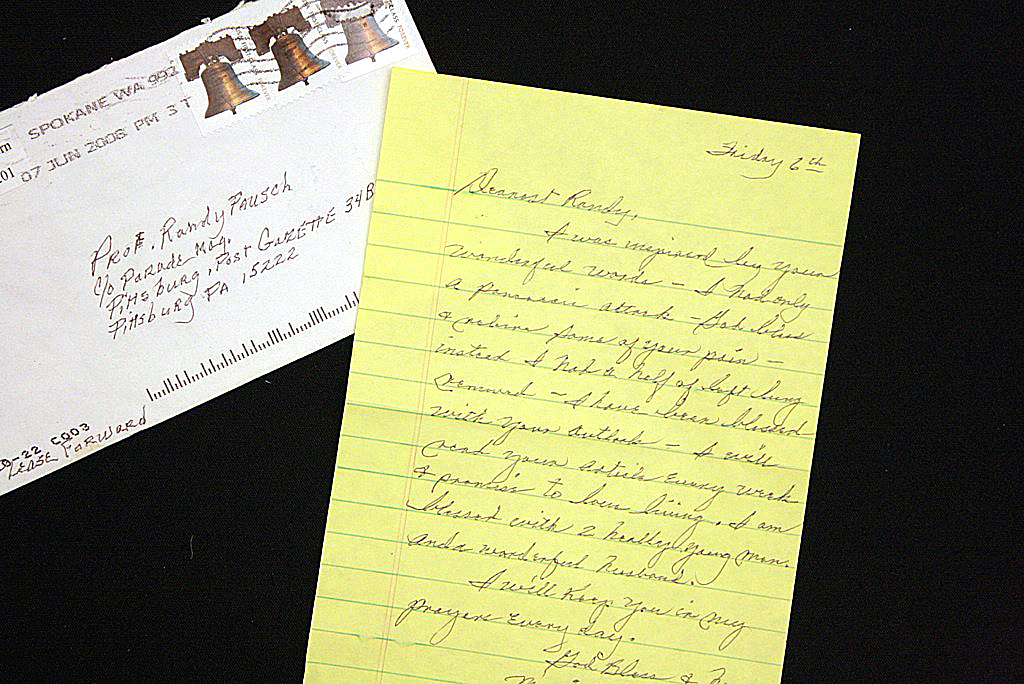 SPOKANE WA 992
07 JUN 2008 PM 3 T
Prof. Randy Pausch
c/o Parade Mag.
Pittsburg, Post Gazette 34B
Pittsburg PA 15222
Please Forward
Friday 6th
Dearest Randy,
I was inspired by your
wonderful words - I had only
a pancreatic attack - God bless
& relieve some of your pain -
instead I had a half of left lung
removed - I have been blessed
with your outlook - I will
read your article every week
& promise to love living. I am
blessed with 2 healthy young men.
and a wonderful husband.
I will keep you in my
prayers every day.
God Bless &